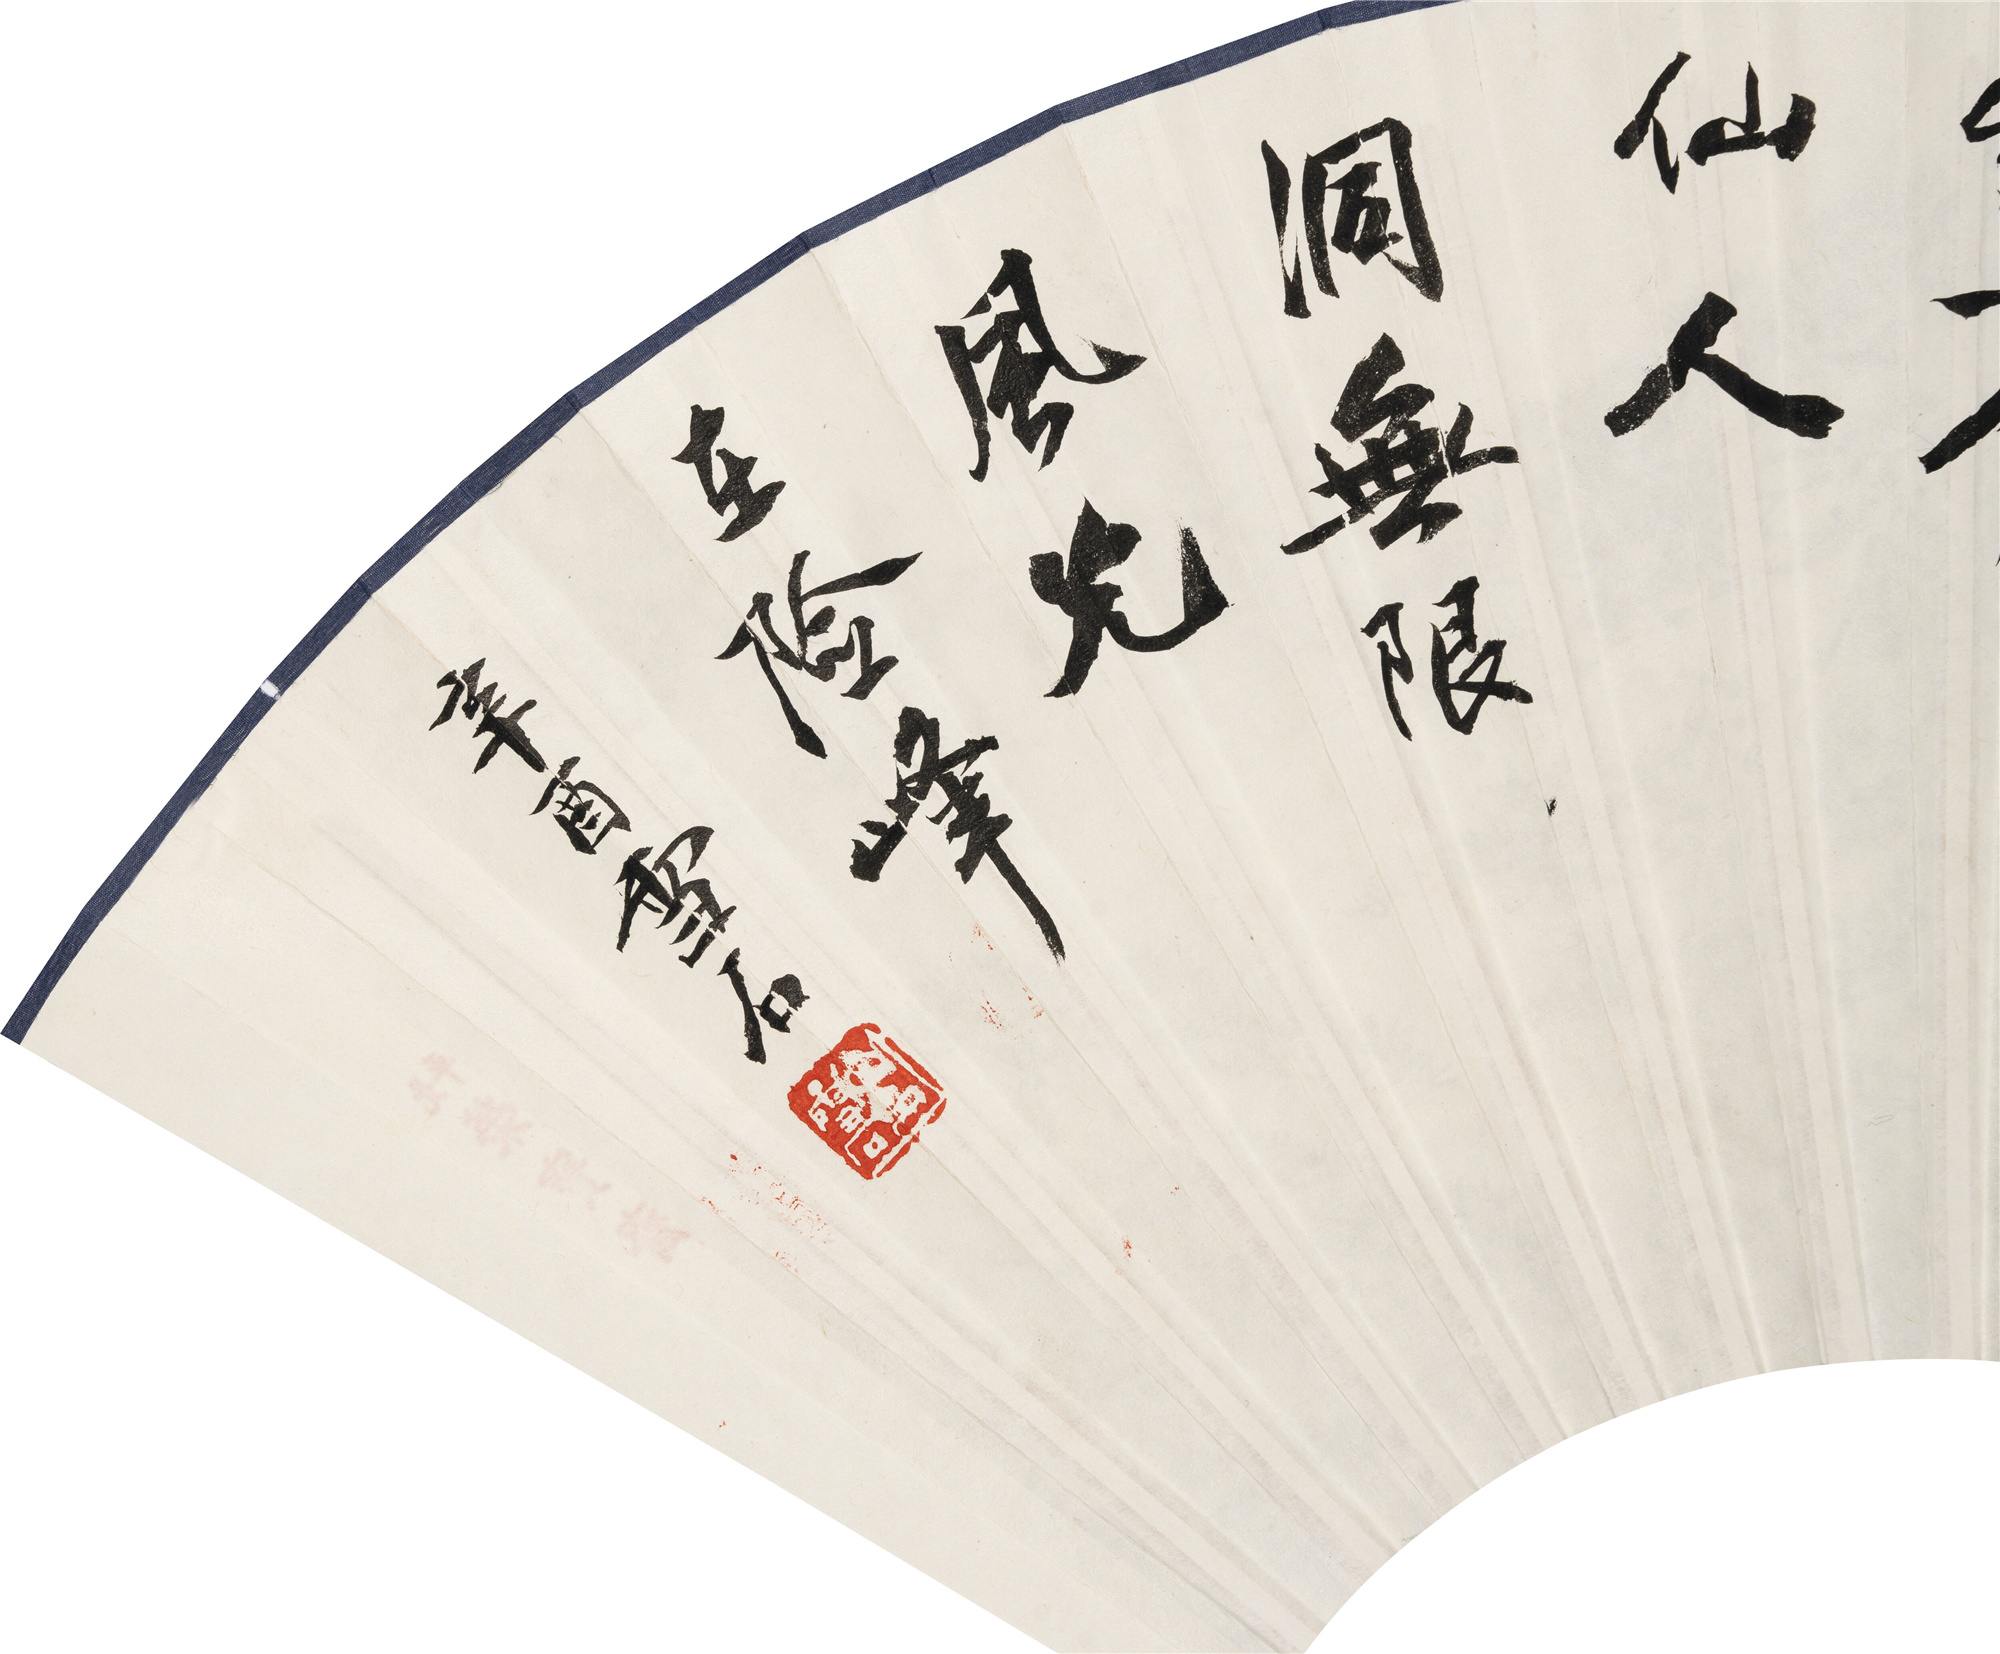 仙人
洞無限
風光
在險峰
辛酉雪石